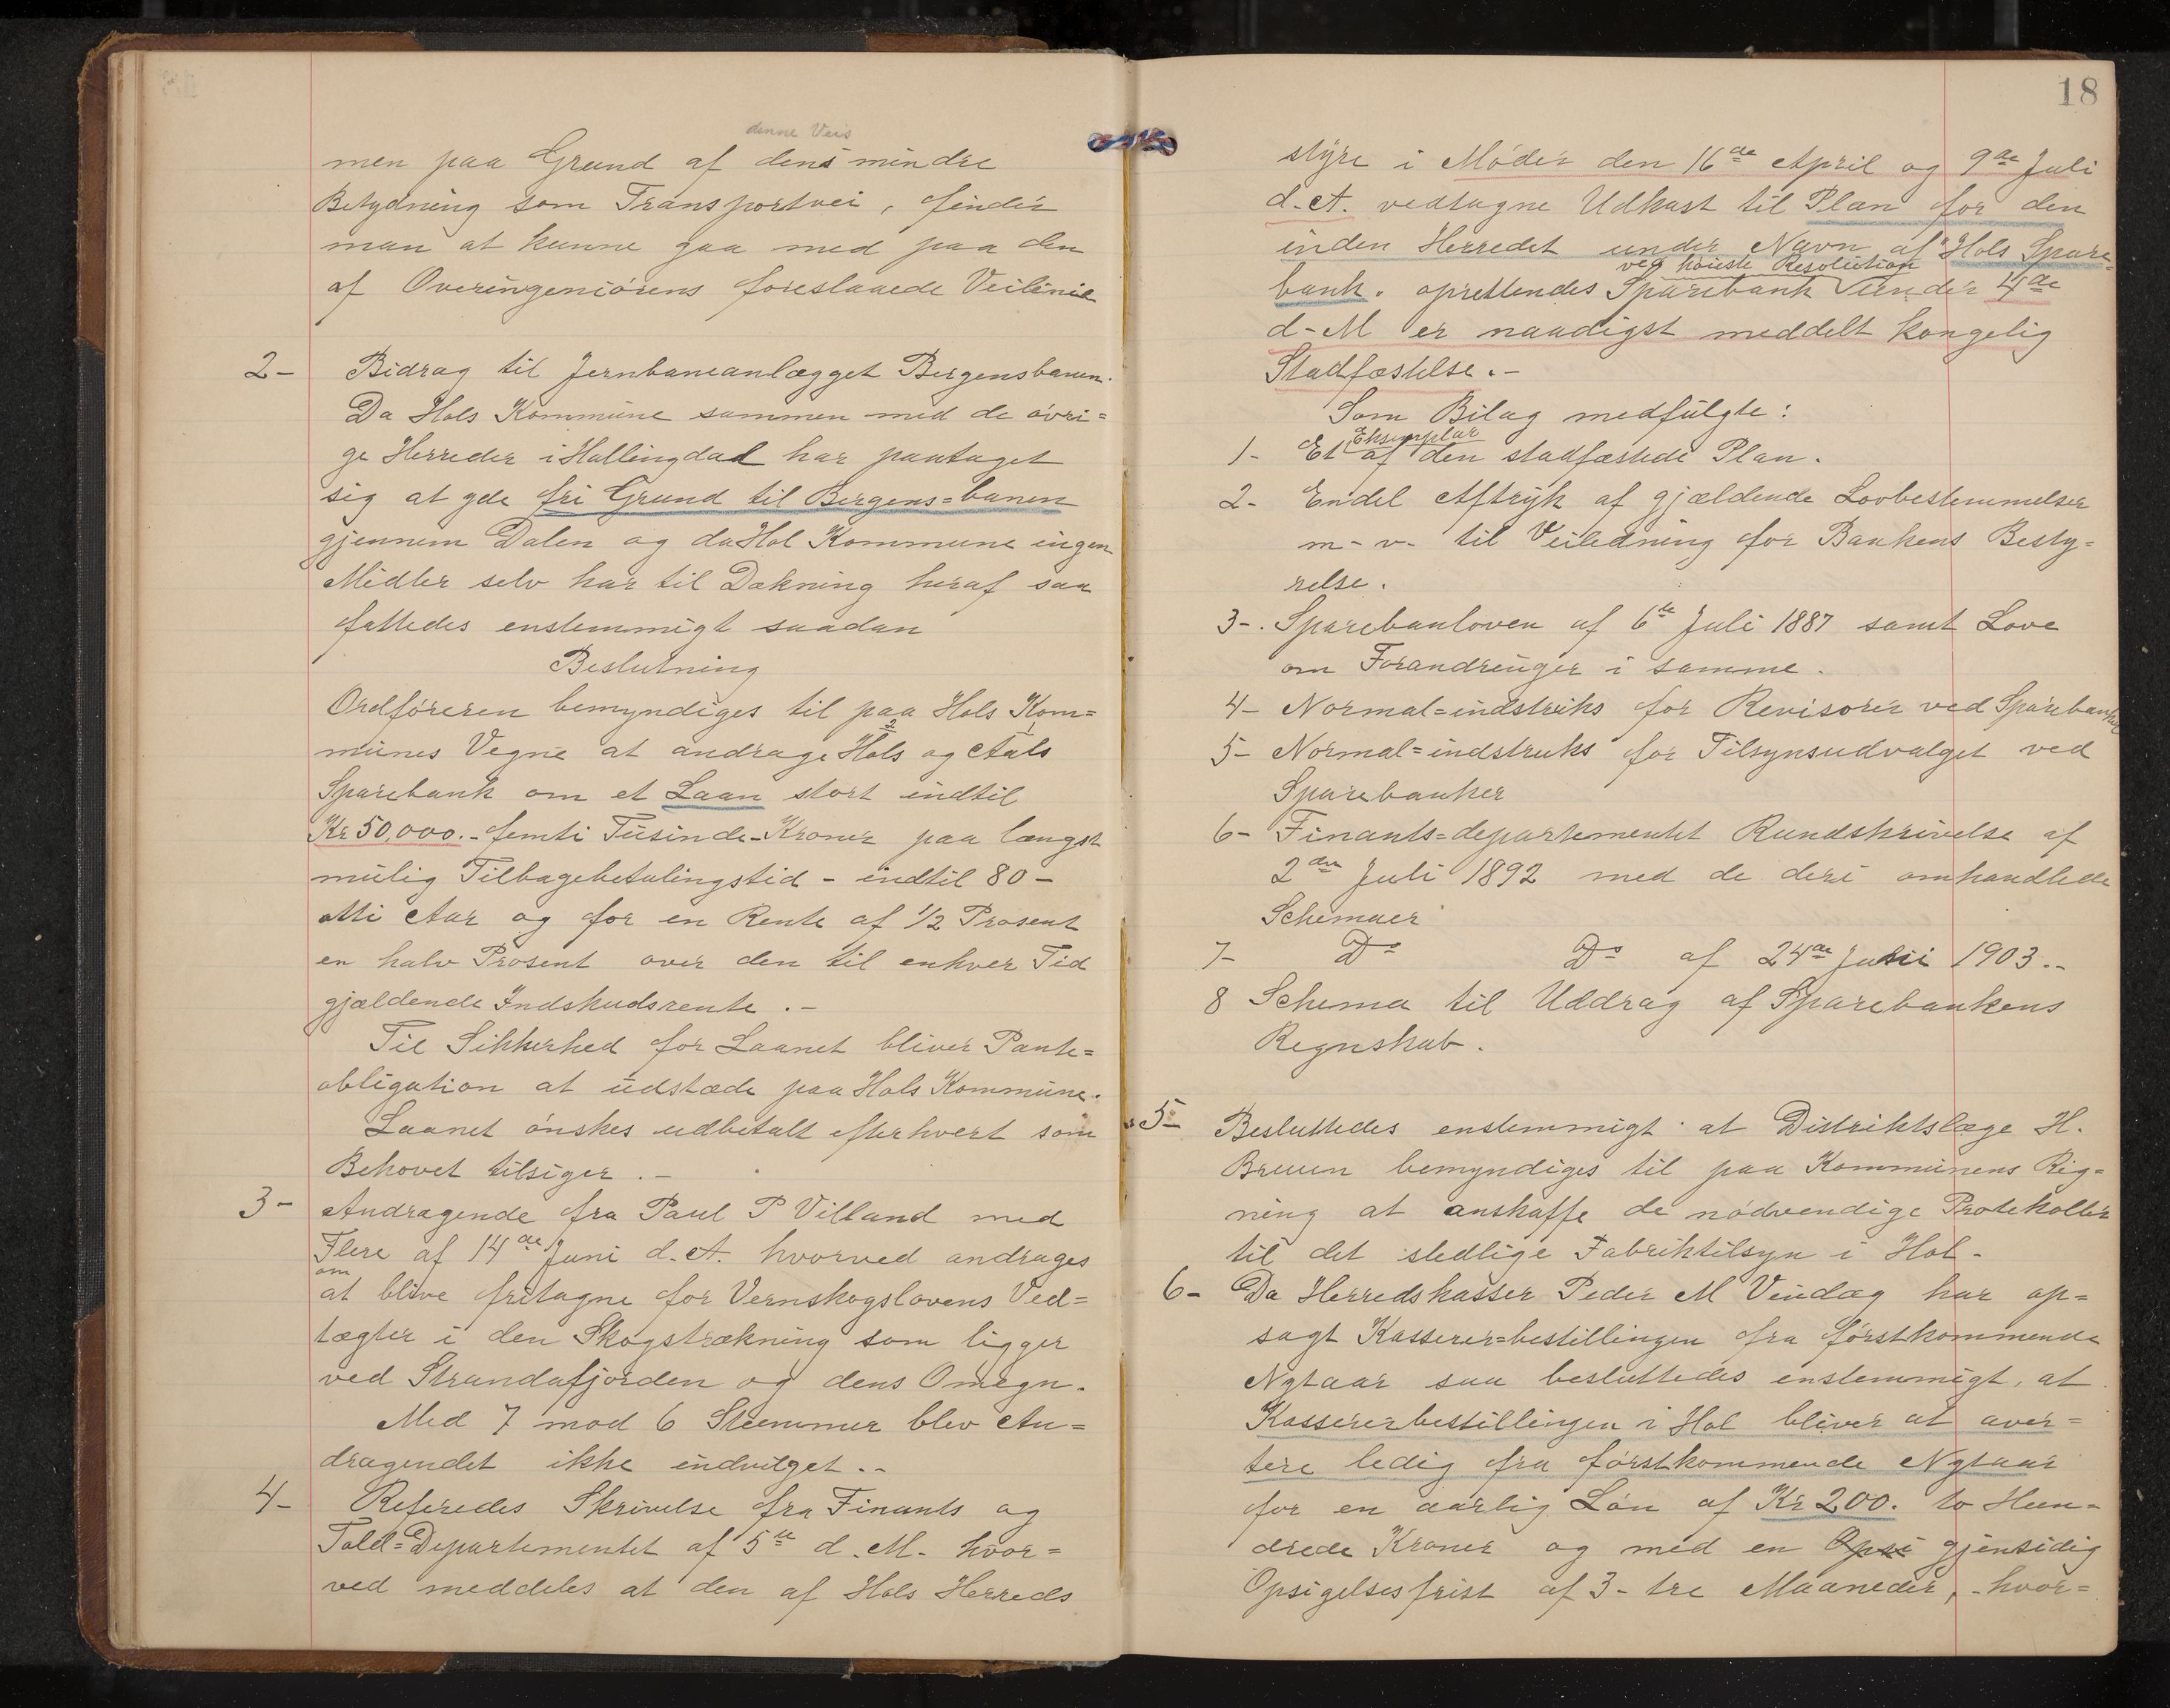 denne Veis
men paa Grund af dens mindre
Betydning som Transportvei, finder
man at kunne gaa med paa den
af Overingeniørens foreslaaede Veilinie
2- Bidrag til Jernbaneanlægget Bergensbanen.
Da Hols Kommune sammen med de øvri=
ge Herreder i Hallingdal har paataget
sig at yde fri Grund til Bergens=banen
gjennem Dalen og da Hol Kommune ingen
Midler selv har til Dækning heraf saa
fattedes enstemmigt saadan
Beslutning
Ordføreren bemyndiges til paa Hols Kom=
munes Vegne at andrage Hols og Aals
Sparebank om et Laan stort indtil
Kr 50,000.- femti Tusinde-Kroner paa længst
mulig Tilbagebetalingstid - indtil 80 -
otti Aar og for en Rente af 1/2 Prosent
en halv Prosent over den til enhver Tid
gjældende Indskudsrente.-
Til Sikkerhed for Laanet bliver Pante=
obligation at udstæde paa Hols Kommune.
Laanet ønskes udbetalt efterhvert som
Behovet tilsiger.-
3- Andragende fra Paul P Villand med
Flere af 14de Juni d.A. hvorved andrages
om
at blive fritagne for Vernskogslovens Ved=
tægter i den Skogstrækning som ligger
ved Strandafjorden og dens Omegn.
Med 7 mod 6 Stemmer blev An=
dragendet ikke indvilget.-
4- Referedes Skrivelse fra Finants og
Told=Departementet af 5te d.M. hvor=
ved meddeles at den af Hols Herreds
18
styre i Møder den 16de April og 9de Juli
d.A. vedtagne Udkast til Plan for den
inden Herredet under Navn af "Hols Spare=
ved høieste Resolution
bank. oprettendes Sparebank under 4de
d-M er naadigst meddelt kongelig
Stadfæstelse.-
Som Bilag medfulgte:
Eksemplar
1- Et af den stadfæstede Plan.
2- Endel Aftryk af gjældende Lovbestemmelser
m-v- til Veiledning for Bankens Besty=
relse.
3-. Sparebanloven af 6te Juli 1887 samt Love
om Forandringer i samme.
4- Normal=indstruks for Revisorer ved Sparebanker
5- Normal=indstruks for Tilsynsudvalget ved
Sparebanker
6- Finants=departementet Rundskrivelse af
2den Juli 1892 med de deri omhandlede
Schemaer
7- Do Do af 24de Juni 1903.-
8 Schema til Uddrag af Sparebankens
Regnskab.
5- Besluttedes enstemmigt at Distriktslæge H.
Bruun bemyndiges til paa Kommunens Rig=
ning at anskaffe de nødvendige Protokoller
til det stedlige Fabriktilsyn i Hol-
6- Da Herredskasser Peder M Vindæg har op=
sagt Kasserer=bestillingen fra førstkommende
Nytaar saa besluttedes enstemmigt, at
Kassererbestillingen i Hol bliver at aver=
tere ledig fra førstkommende Nytaar
for en aarlig Løn af Kr 200. to Hun=
drede Kroner og med en Opsi gjensidig
Opsigelsesfrist af 3- tre Maaneder, - hvor=